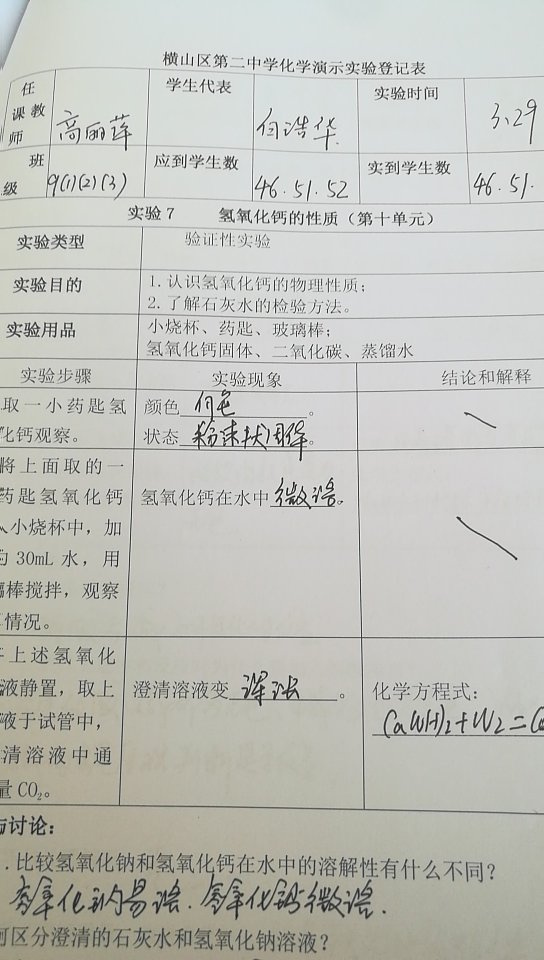 横山区第二中学化学演示实验登记表
任课教师 高丽萍 学生代表 白浩华 实验时间 3.29
班级 9(1)(2)(3) 应到学生数 46.51.52 实到学生数 46.51.
实验7 氢氧化钙的性质（第十单元）
实验类型 验证性实验
实验目的 1.认识氢氧化钙的物理性质；
2.了解石灰水的检验方法。
实验用品 小烧杯、药匙、玻璃棒；
氢氧化钙固体、二氧化碳、蒸馏水
实验步骤 实验现象 结论和解释
取一小药匙氢 颜色 白色。
化钙观察。 状态 粉末状固体。
将上面取的一
药匙氢氧化钙 氢氧化钙在水中 微溶。
小烧杯中，加
30mL水，用
棒搅拌，观察
情况。
上述氢氧化
液静置，取上 澄清溶液变 浑浊。 化学方程式：
液于试管中，
清溶液中通
量CO₂。
讨论：
.比较氢氧化钠和氢氧化钙在水中的溶解性有什么不同？
氢氧化钠易溶.氢氧化钙微溶.
区分澄清的石灰水和氢氧化钠溶液？